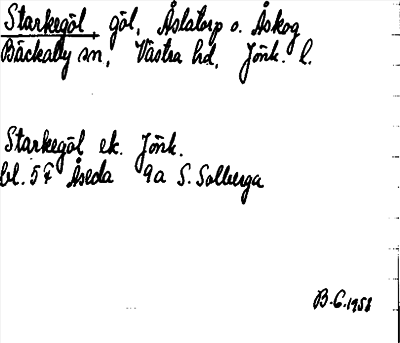 Starkegöl, göl, Åslatorp o. Åskog
Bäckaby sn, Västra hd, Jönk. l.
Starkegöl ek. Jönk.
bl. 5F Åseda 9a S. Solberga
B.G. 1958